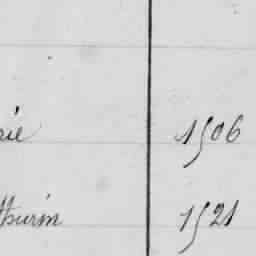 rie 1506
thurin 1521